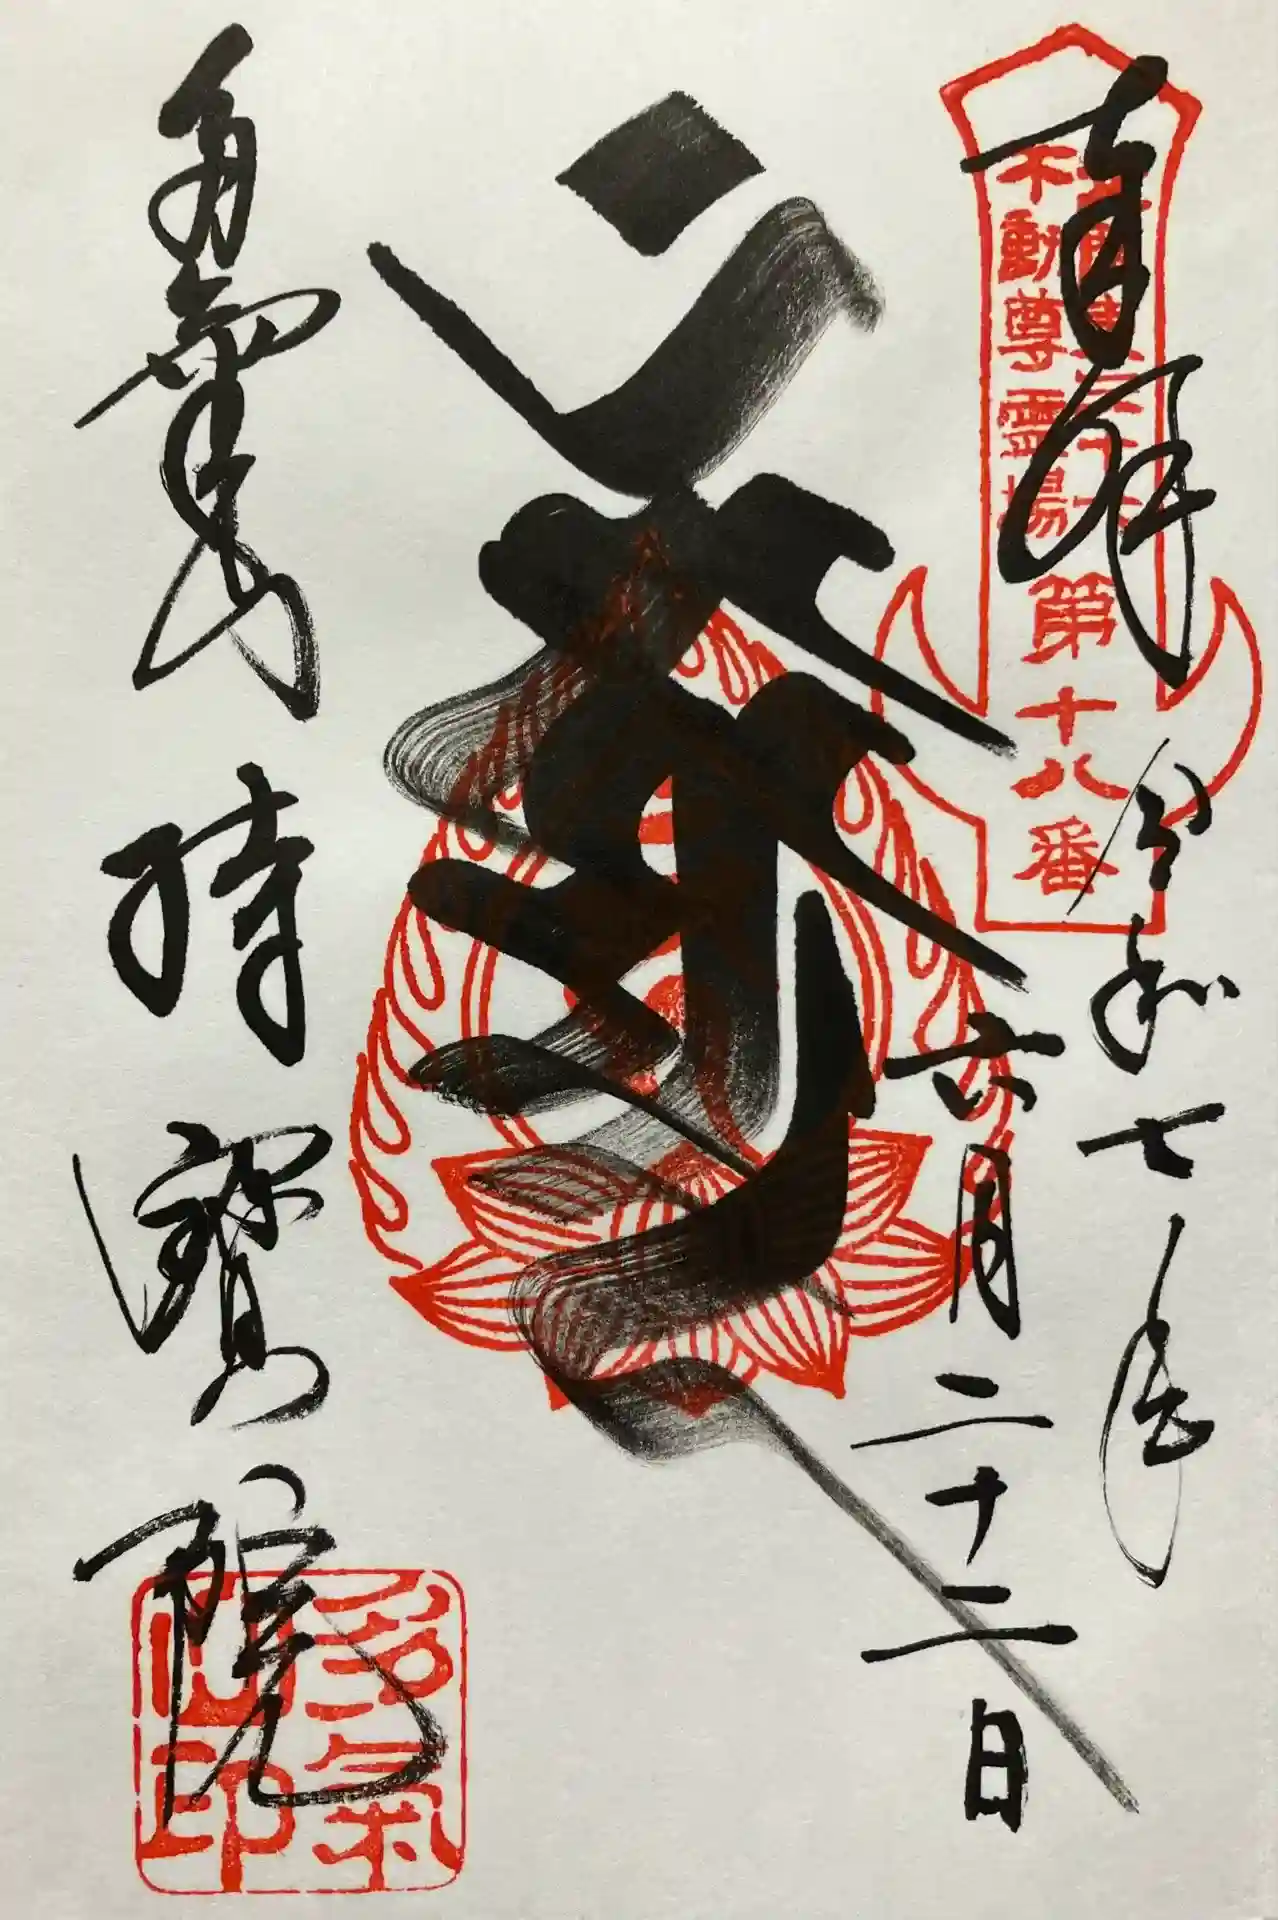 奉拝
関東三十六
不動尊霊場
第十八番
令和七年
六月二十二日
多氣山
持寳院
多氣
山印